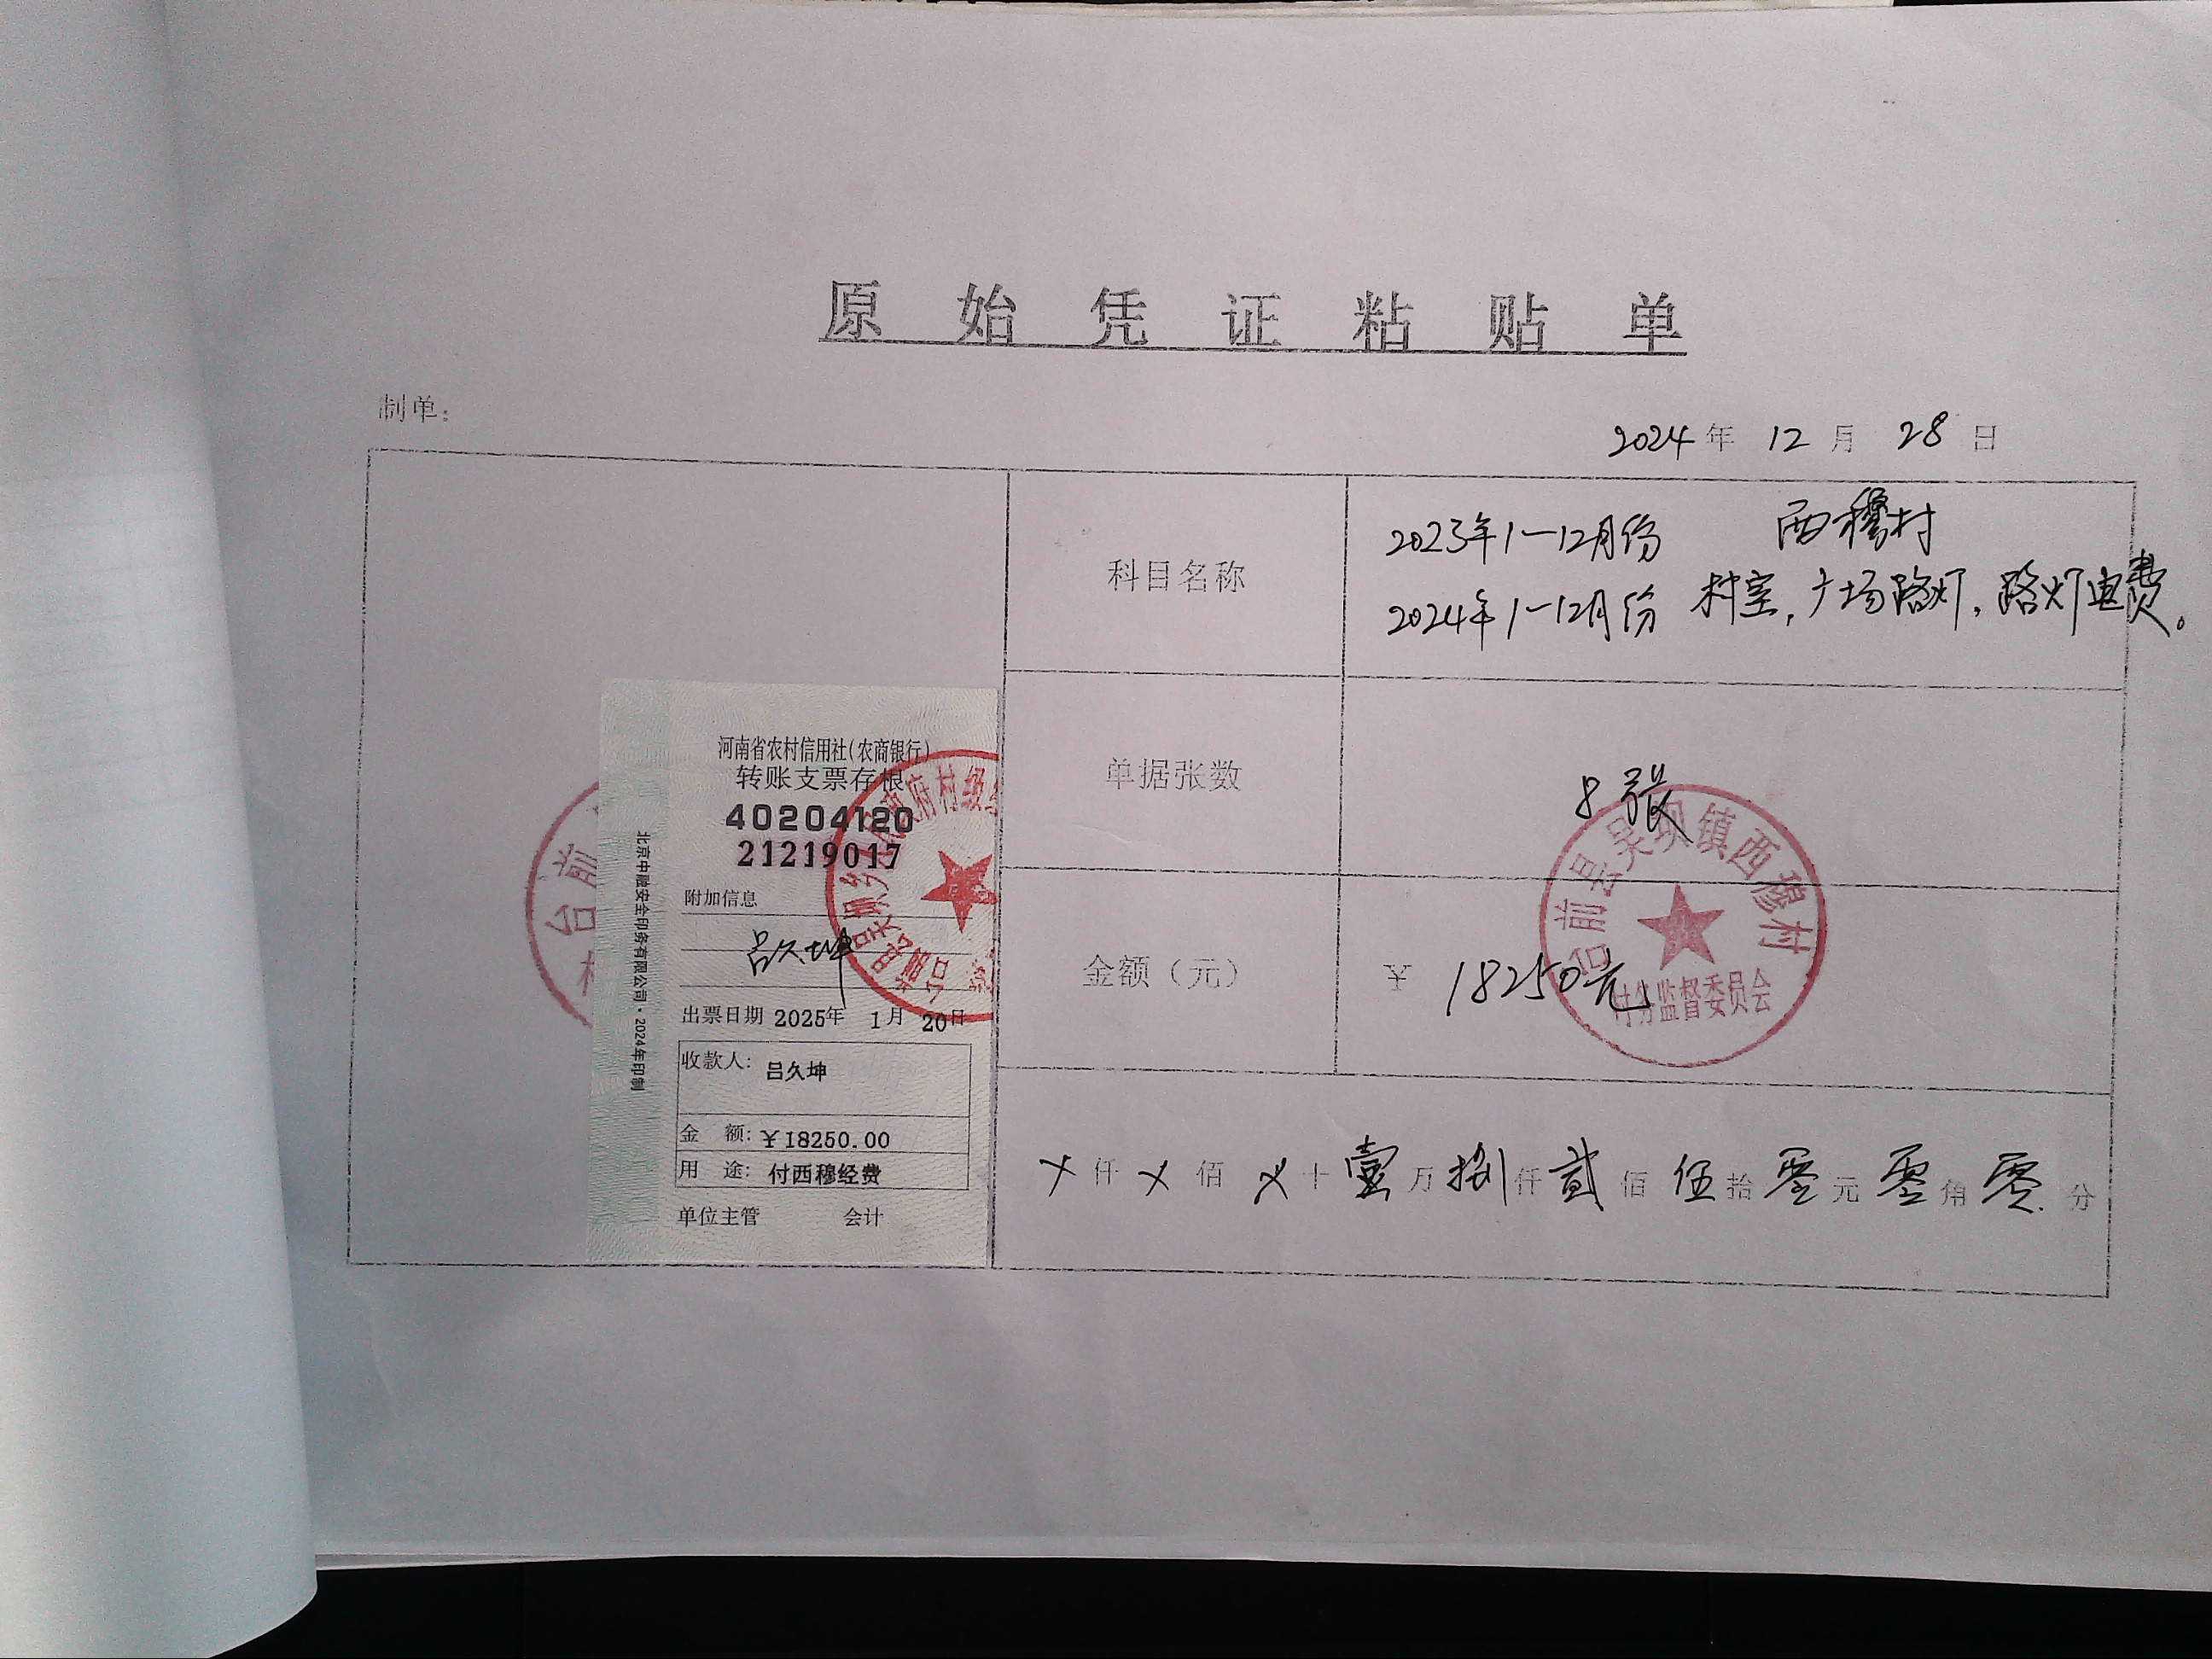 原始凭证粘贴单
制单：
2024年 12月 28日
科目名称
2023年1一12月份 西穆村
2024年1一12月份 村室,广场路灯,路灯电费。
单据张数
8张
金额（元）
¥ 18250元
台前县吴坝镇西穆村
村务监督委员会
X仟X佰X十壹万捌仟贰佰伍拾零元零角零分
河南省农村信用社(农商银行)
转账支票存根
40204120
21219017
附加信息
吕久坤
出票日期 2025年 1月 20日
收款人: 吕久坤
金 额: ¥18250.00
用 途: 付西穆经费
单位主管 会计
北京中融安全印务有限公司·2024年印制
台前
村